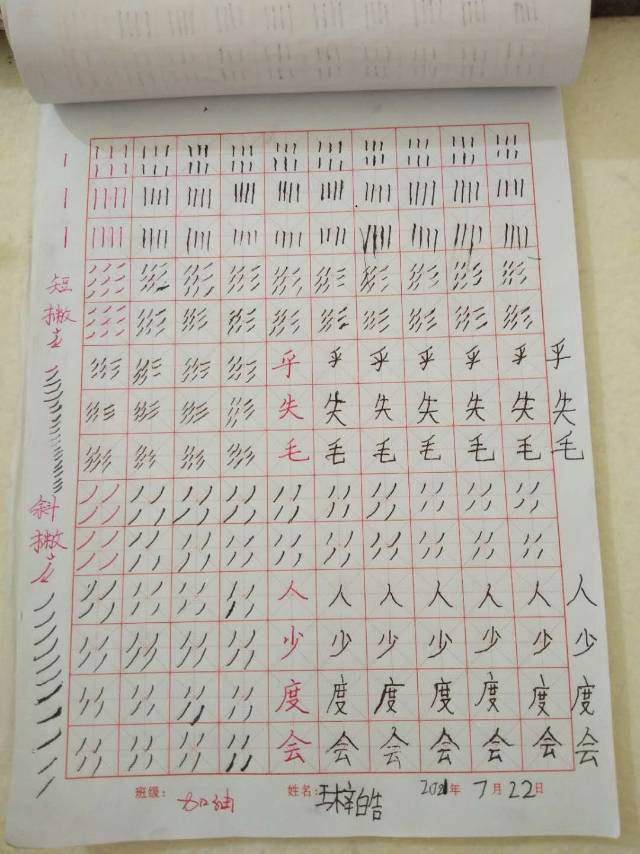 短
撇
乎 乎 乎 乎 乎 乎 乎
失 失 失 失 失 失 失
毛 毛 毛 毛 毛 毛 毛
斜
撇
人 人 人 人 人 人 人
少 少 少 少 少 少 少
度 度 度 度 度 度 度
会 会 会 会 会 会 会
班级： 加油 姓名： 梓皓 2021年 7月 22日